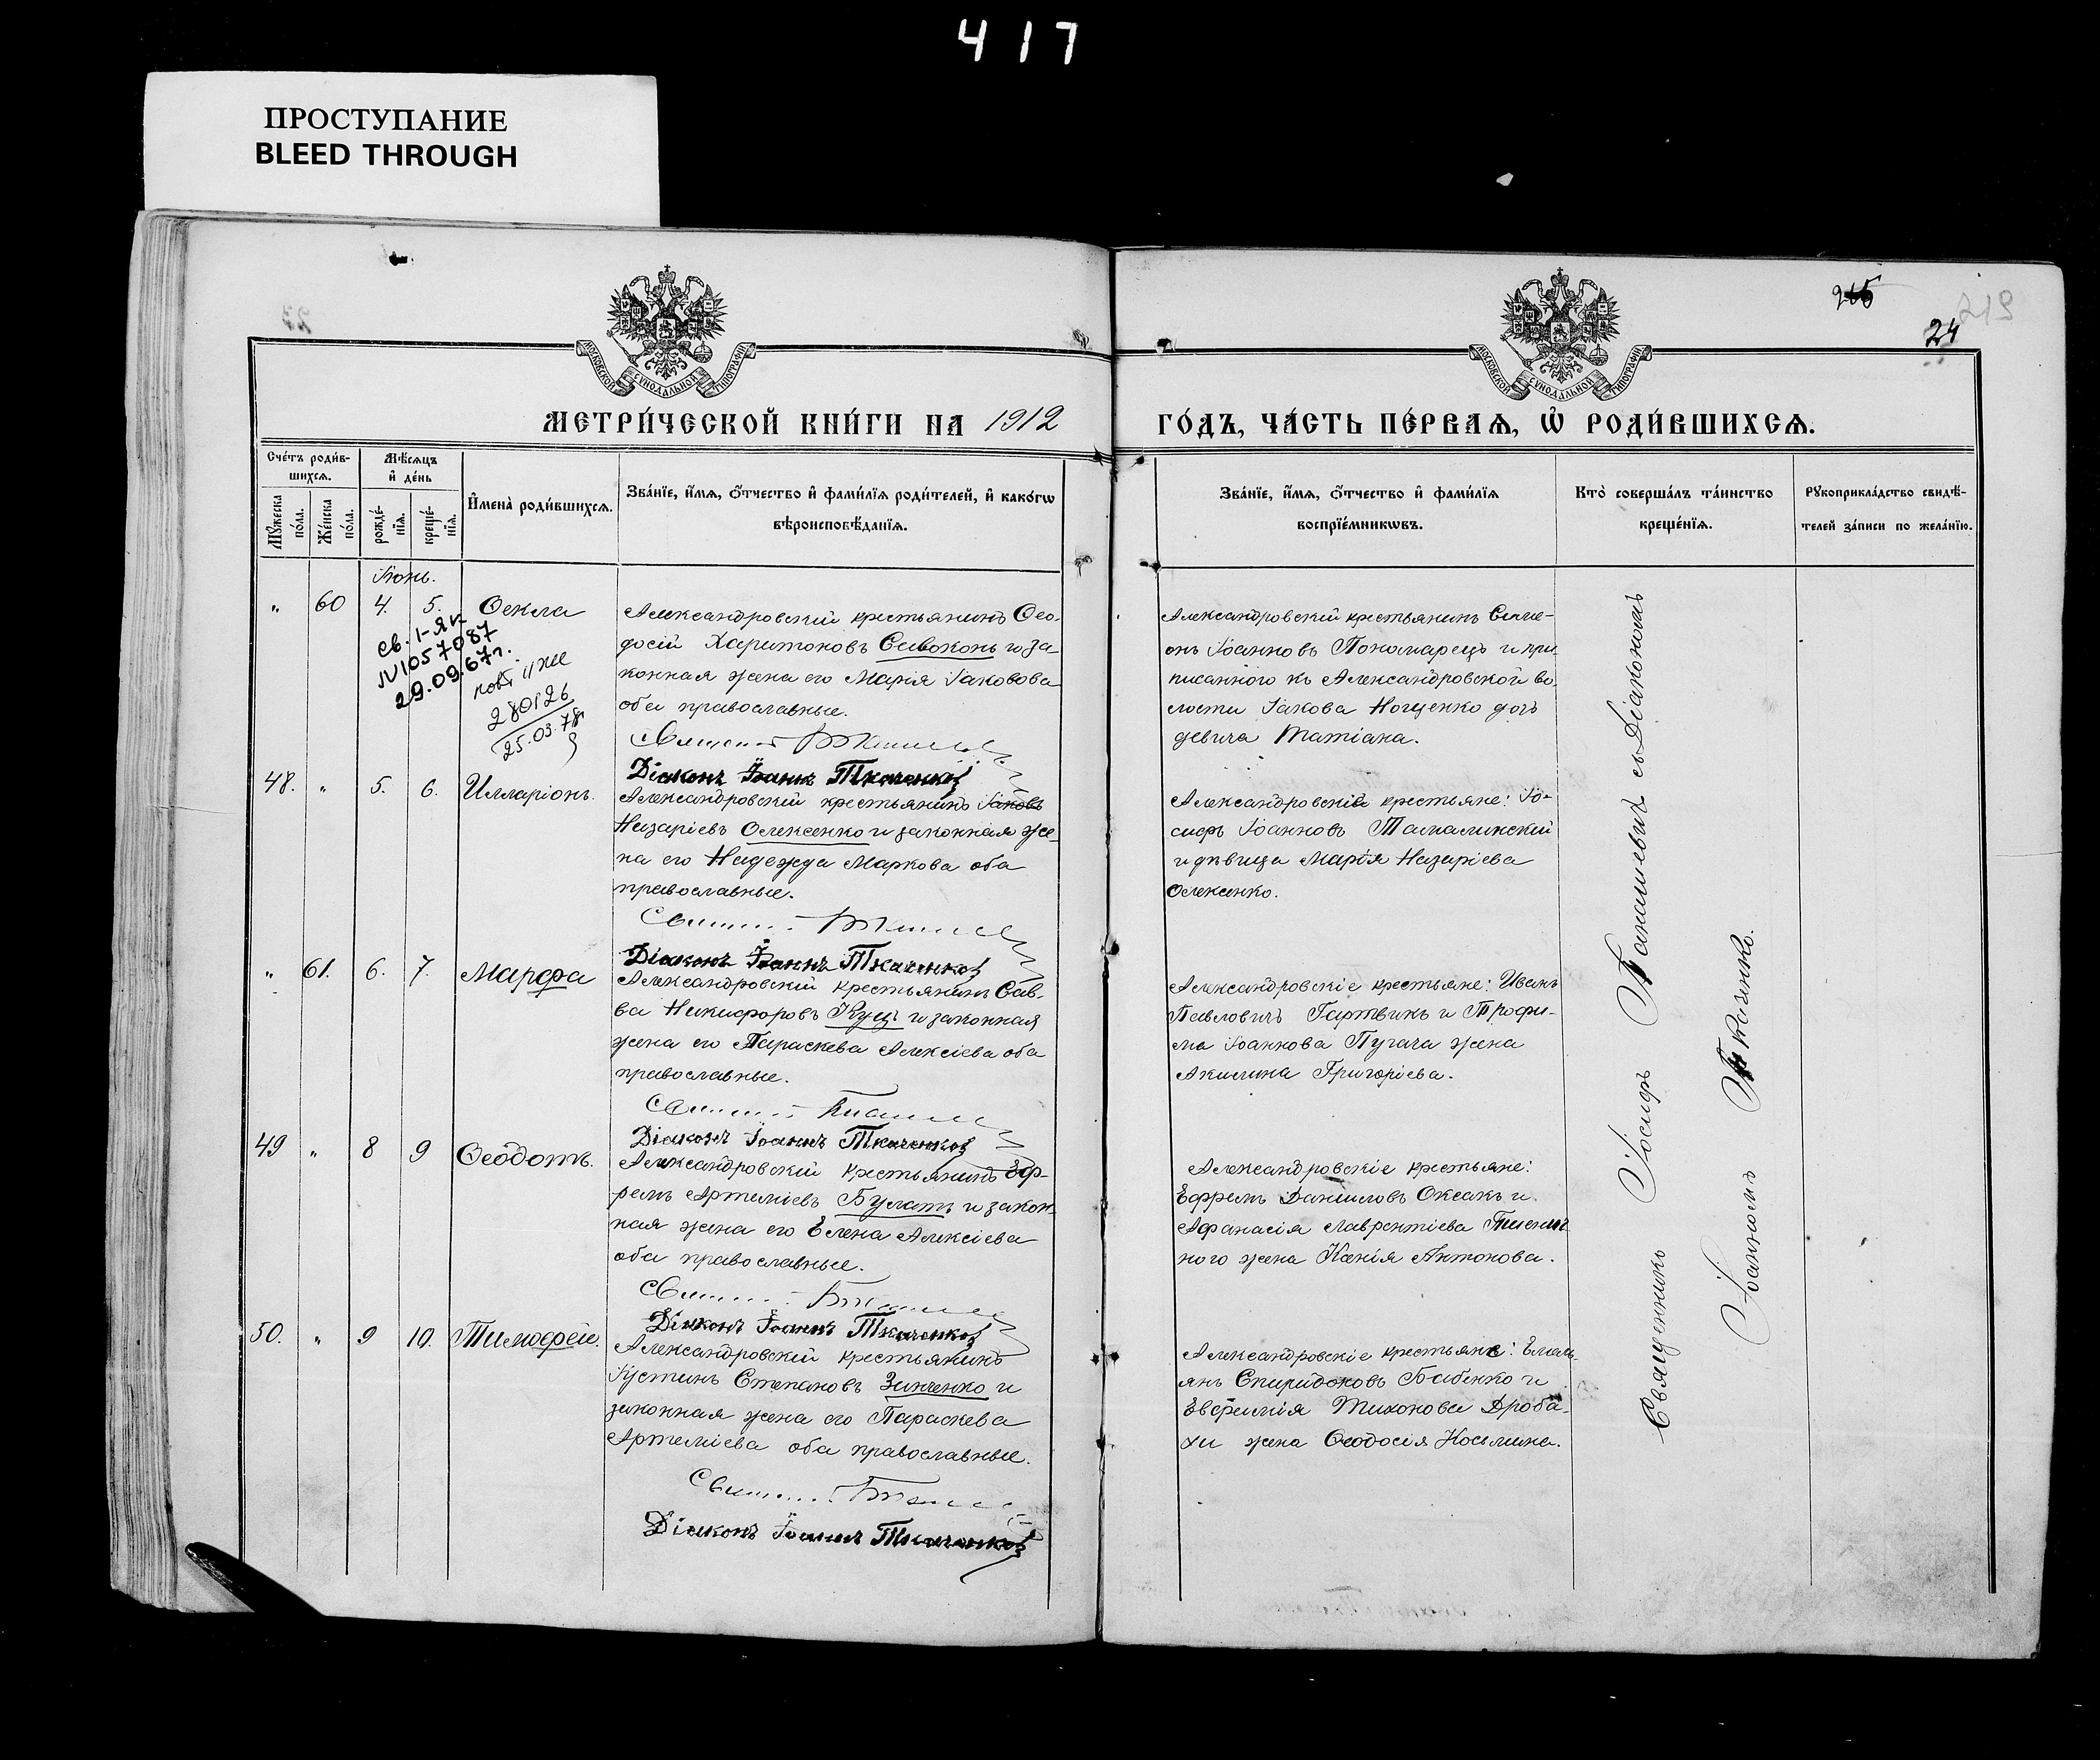 417
ПРОСТУПАНИЕ
BLEED THROUGH
219
24
МОСКОВСКОЙ СУНОДАЛЬНОЙ ТИПОГРАФІИ
МОСКОВСКОЙ СУНОДАЛЬНОЙ ТИПОГРАФІИ
МЕТРИ́ЧЕСКОЙ КНИ́ГИ НА 1912
ГО́ДЪ, ЧА́СТЬ ПЕ́РВАѦ, Ѡ҆ РОДИ́ВШИХСѦ.
Сче́тъ роди́в-
шихсѧ.
Мѣ́сѧцъ
и҆ де́нь
Мꙋ́жеска
по́ла.
Же́нска
по́ла.
рожде́-
нїѧ.
креще́-
нїѧ.
И҆мена̀ роди́вшихсѧ.
Зва́нїе, и҆́мѧ, ѻ҆́тчество и҆ фами́лїѧ роди́телей, и҆ како́гѡ
вѣроисповѣ́данїѧ.
Зва́нїе, и҆́мѧ, ѻ҆́тчество и҆ фами́лїѧ
воспрїе́мникѡвъ.
Кто̀ соверша́лъ та́инство
креще́нїѧ.
Рꙋкоприкла́дство свидѣ́-
телей за́писи по жела́нїю.
Іюнь.
" 60 4. 5. Ѳекла
св. I-ЯК
№1057087
29.09.67г.
280126
25.03.78г
Александровскій крестьянинъ Ѳео-
досій Харитоновъ Сивоконь и за-
конная жена его Марія Іаковова
оба православные.
Діаконъ Іоаннъ Ткаченко
Александровскій крестьянинъ Симе-
онъ Іоанновъ Пономарецъ и при-
писанного къ Александровской во-
лости Іакова Нощенко дочь
девица Татіана.
48. " 5. 6. Илларіонъ.
Александровскій крестьянинъ Іаковъ
Назаріевъ Олексенко и законная же-
на его Надежда Маркова оба
православные.
Діаконъ Іоаннъ Ткаченко
Александровскіе крестьяне: Іо-
сифъ Іоанновъ Тамалинскій
и дѣвица Марія Назаріева
Олексенко.
" 61. 6. 7. Марфа
Александровскій крестьянинъ Сав-
ва Никифоровъ Куцъ и законная
жена его Параскева Алексіева оба
православные.
Діаконъ Іоаннъ Ткаченко
Александровскіе крестьяне: Иванъ
Павловичъ Гартвикъ и Трофи-
ма Іоаннова Пугача жена
Акилина Григоріева.
49 " 8 9 Ѳеодотъ.
Александровскій крестьянинъ Еф-
ремъ Артеміевъ Булатъ и закон-
ная жена его Елена Алексіева
оба православные.
Діаконъ Іоаннъ Ткаченко
Александровскіе крестьяне:
Ефремъ Даниловъ Оксакъ и
Афанасія Лаврентіева
ного жена Ксенія Антонова.
50. " 9 10. Тимофей.
Александровскій крестьянинъ
Іустинъ Степановъ Зинченко и
законная жена его Параскева
Артеміева оба православные.
Діаконъ Іоаннъ Ткаченко
Александровскіе крестьяне: Емель-
янъ Спиридоновъ Бабенко и
Евфимія Тихонова Дроба-
хи жена Ѳеодосія Косьмина.
Священникъ Іосифъ съ Діакономъ
Іоанномъ Ткаченко.